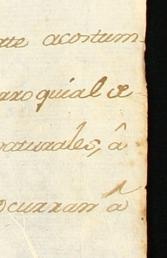 te acostum-
rroquial de
naturales, â
ocurran â